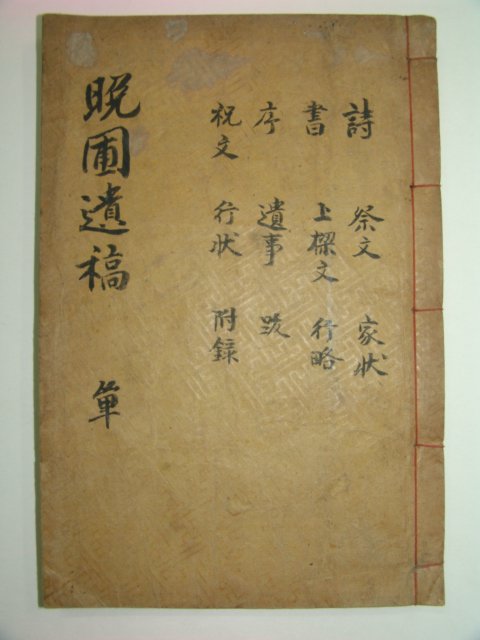 晩圃遺稿 單
詩 祭文 家狀
書 上樑文 行略
序 遺事 跋
祝文 行狀 附録